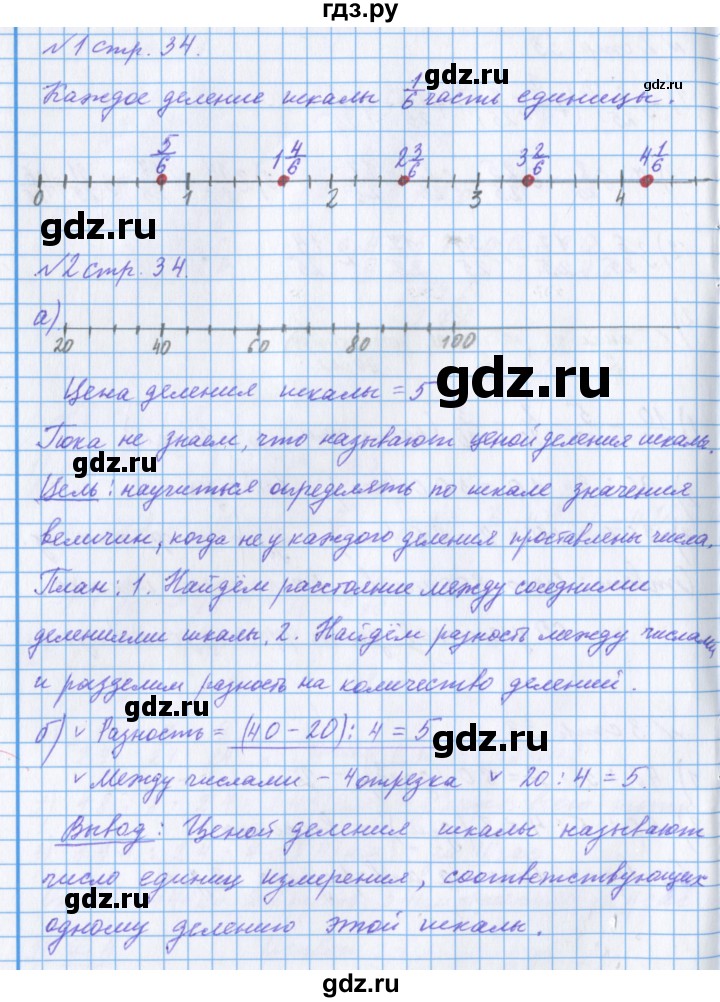 гдз.ру
№1 стр. 34.
gdz.ru
gdz.ru
Каждое деление шкалы 1/6 часть единицы.
5/6 1 4/6 2 3/6 3 2/6 4 1/6
0 1 2 3 4
gdz.ru
gdz.ru
gdz.ru
№2 стр. 34.
а)
20 40 60 80 100
gdz.ru
gdz.ru
Цена деления шкалы = 5
Пока не знаем, что называют ценой деления шкалы.
gdz.ru
Цель: научиться определять по шкале значения
величин, когда не у каждого деления проставлены числа.
gdz.ru
План: 1. Найдём расстояние между соседними
делениями шкалы. 2. Найдём разность между числами
и разделим разность на количество делений.
gdz.ru
gdz.ru
б) v Разность = (40 - 20) : 4 = 5
v Между числами - 4 отрезка v 20 : 4 = 5.
Вывод: Ценой деления шкалы называют
число единиц измерения, соответствующих
gdz.ru
gdz.ru
одному делению этой шкалы.
gdz.ru